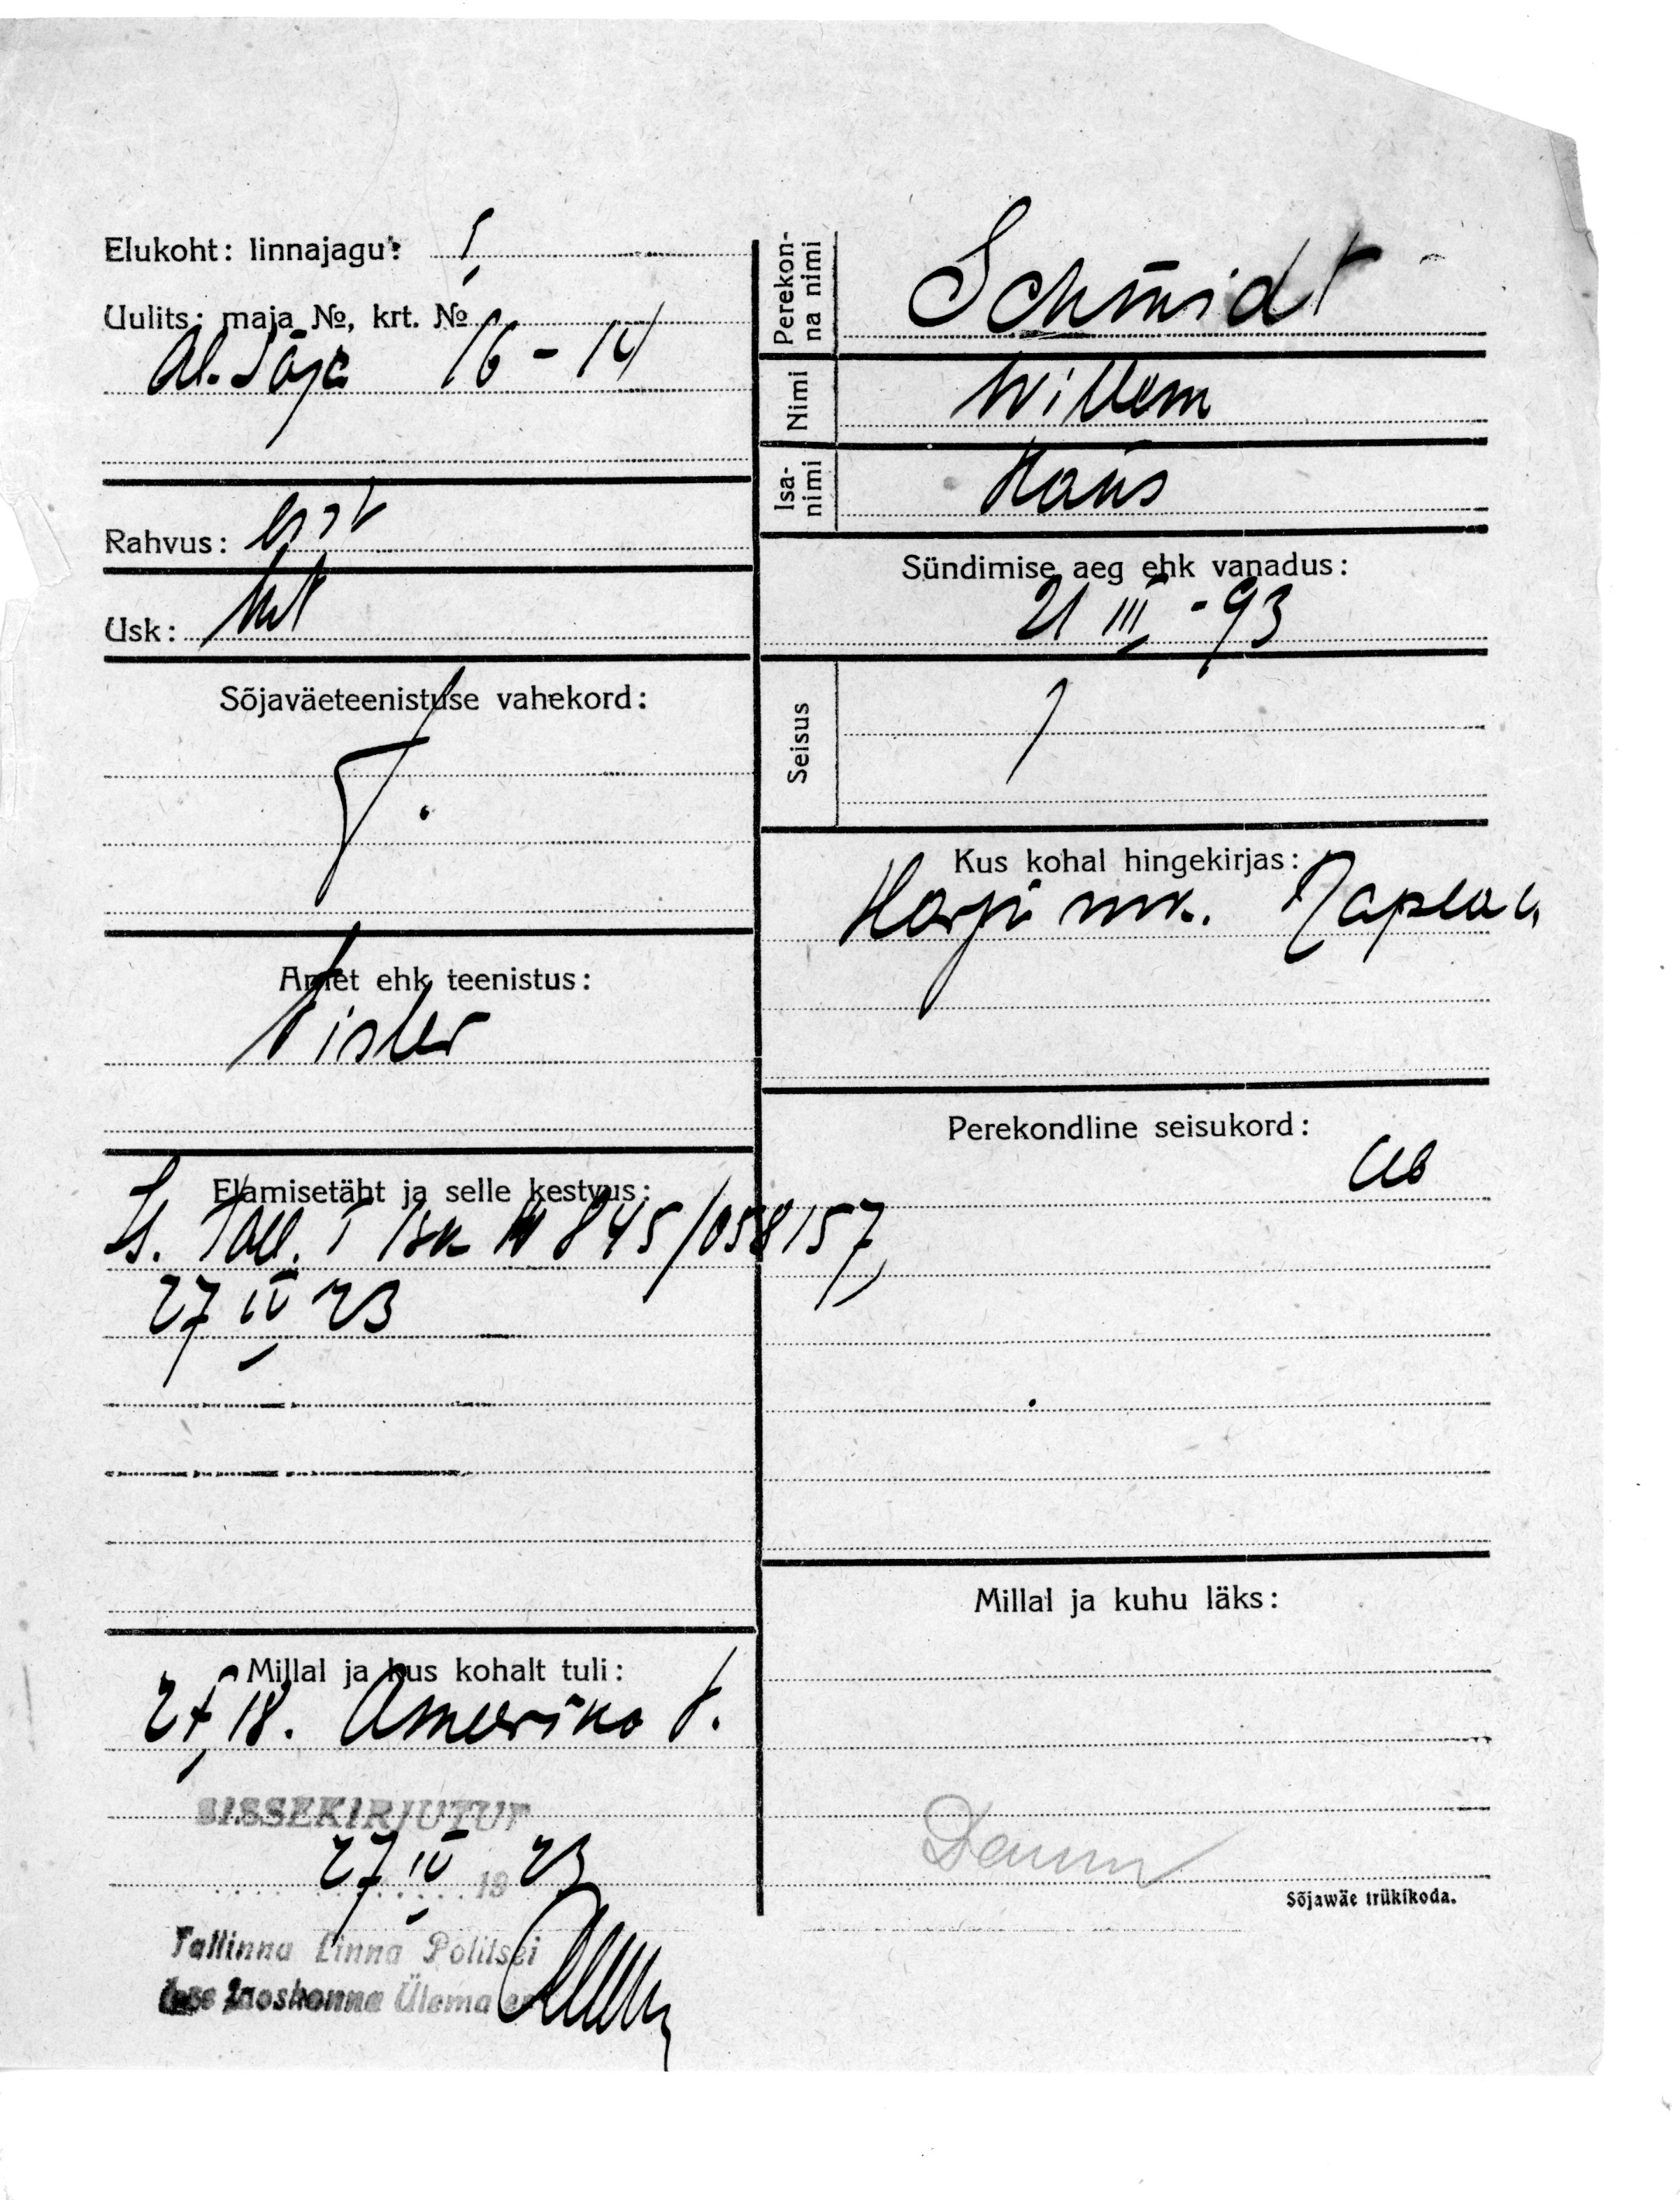 Elukoht: linnajagu: I
Uulits: maja №, krt. №
16 - 14
Rahvus: est
Usk: lut
Sõjaväeteenistuse vahekord:
Amet ehk teenistus:
Tisler
Elamisetäht ja selle kestvus:
Is. Tall. I Jsk № 845/058157,
27 IV 23
Millal ja kus kohalt tuli:
Ameerika t.
SISSEKIRJUTUT
27 IV 19 23
Tallinna Linna Politsei
Jaoskonna Ülema
Perekonna nimi
Schmidt
Nimi
Willem
Isanimi
Hans
Sündimise aeg ehk vanadus:
21 III - 93
Seisus
Kus kohal hingekirjas:
Harju mk. Rapla v.
Perekondline seisukord:
Millal ja kuhu läks:
Sõjawäe trükikoda.